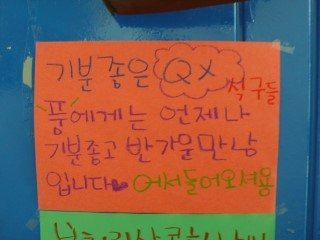 기분좋은 QX 적구들
풍에게는 언제나
기분좋고 반가운만남
입니다 어서들어오셔용